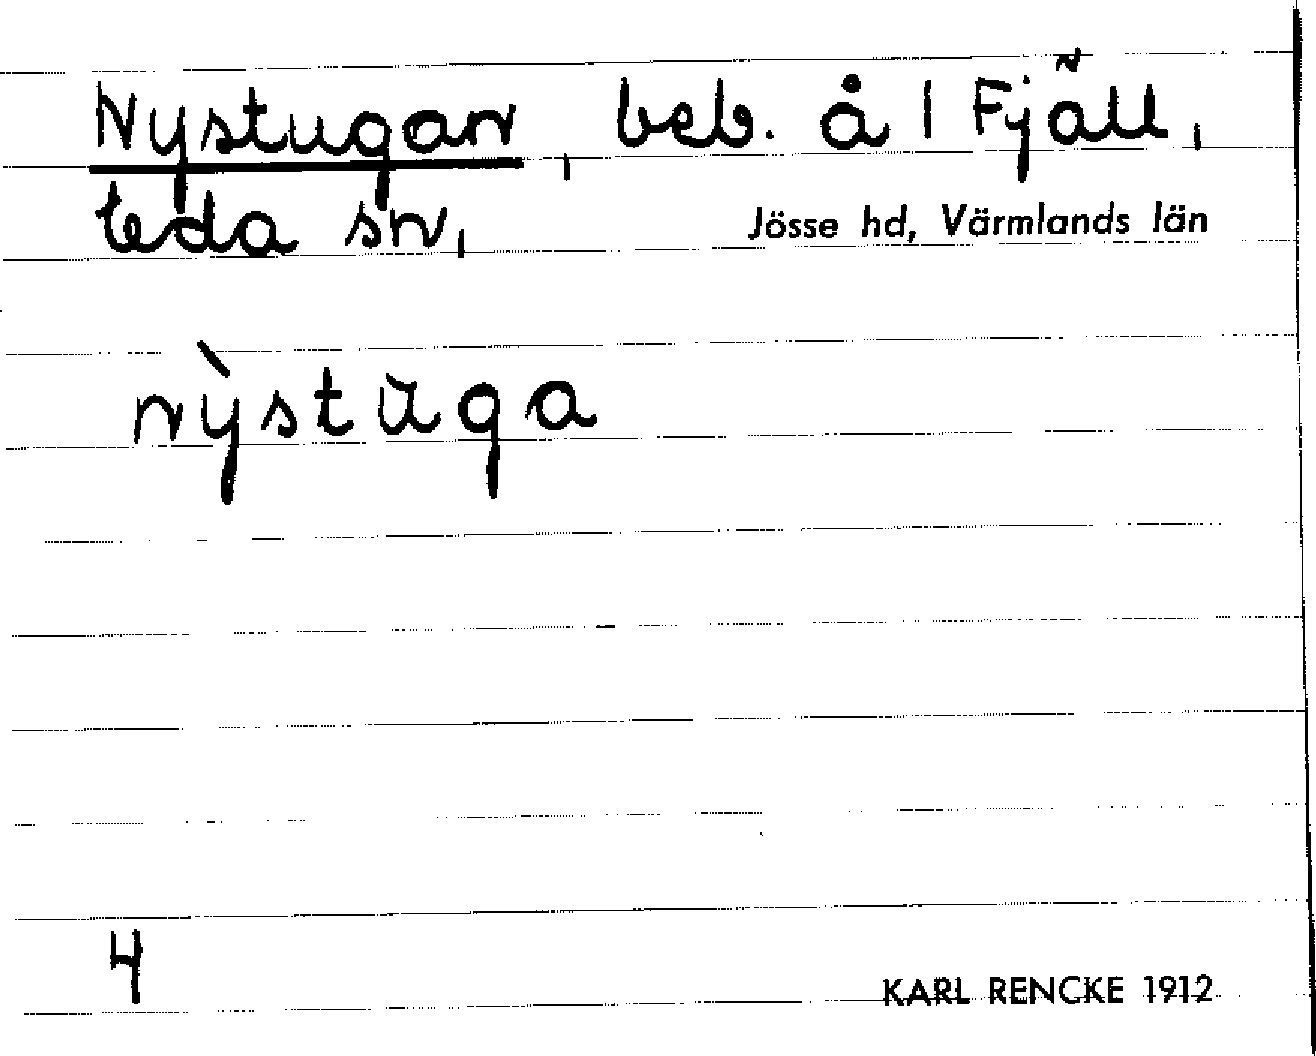 Nystugan, beb. å 1 Fjäll,
Eda sn, Jösse hd, Värmlands län
nỳstŭga
4
KARL RENCKE 1912